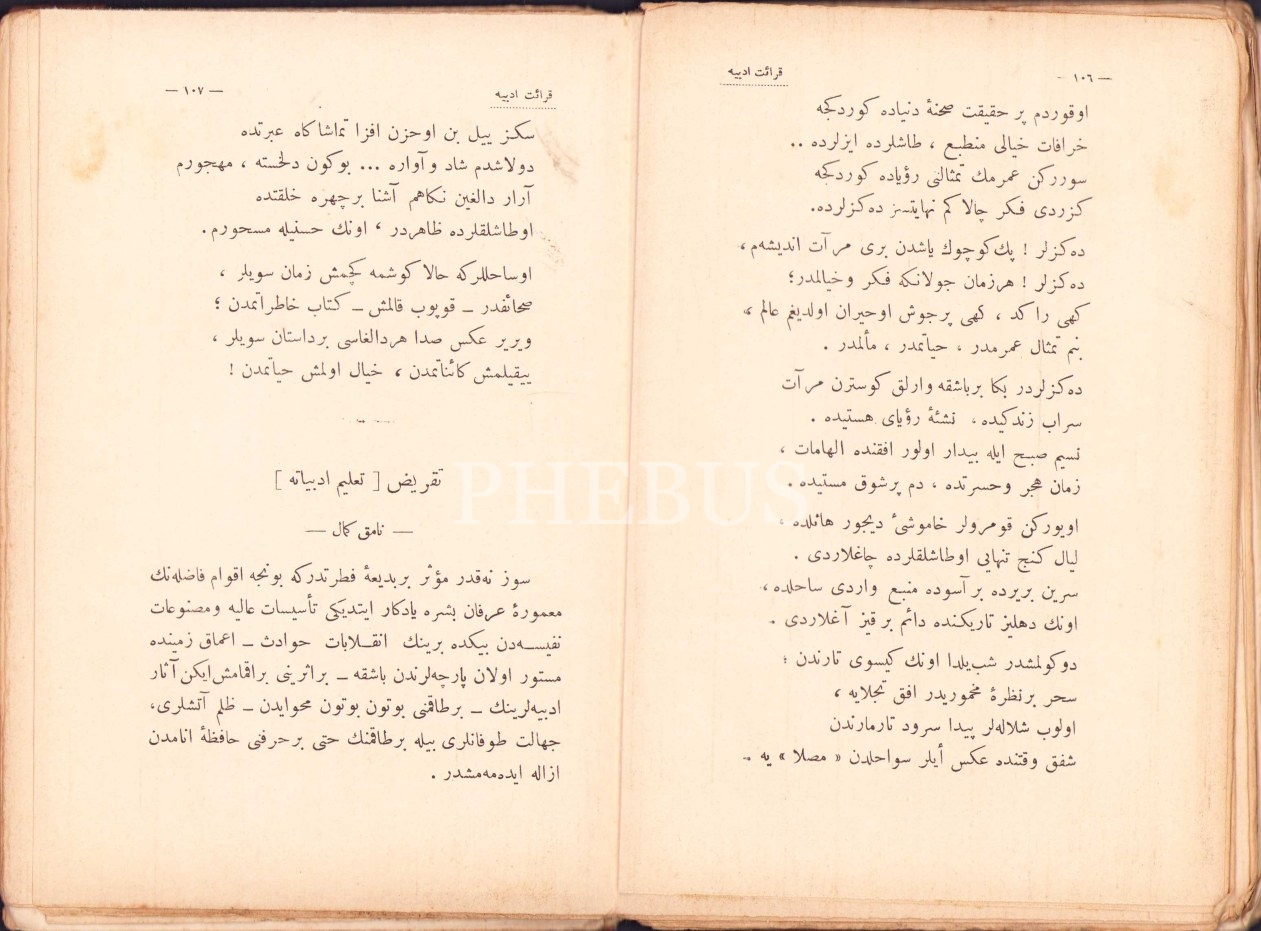 — ١٠٦ —
قرائت ادبيه
اوقوردم پر حقيقت صحنهٔ دنياده كوردكجه
خرافات خيالى منطبع ، طاشلرده ايزلرده ..
سوركن عمرمك تمثالنى رؤياده كوردكجه
كزردى فكر چالاكم نهايتسز ده‌كزلرده.
ده‌كزلر ! پك كوچوك ياشدن برى مرآت انديشه‌م ،
ده‌كزلر ! هرزمان جولانكه فكر و خيالمدر؛
كهى راكد ، كهى پرجوش اوحيران اولديغم عالم ،
بنم تمثال عمرمدر ، حياتمدر ، مألمدر .
ده‌كزلردر بكا برباشقه وارلق كوسترن مرآت
سراب زندكيده ، نشئهٔ رؤياى هستيده .
نسيم صبح ايله بيدار اولور افقنده الهامات ،
زمان هجر وحسرتده ، دم پرشوق مستيده .
اويوركن قومرولر خاموشىٔ ديجور هائلده ،
ليال كنج تنهايى اوطاشلقلرده چاغلاردى .
سرين بريرده بر آسوده منبع واردى ساحلده ،
اونك دهليز تاريكنده دائم بر قيز آغلاردى .
دوكولمشدر شب يلدا اونك كيسوى تارندن ؛
سحر برنظرهٔ مخموريدر افق تجلايه ،
اولوب شلاله‌لر پيدا سرود تارمارندن
شفق وقتنده عكس أيلر سواحلدن « مصلا » يه .
قرائت ادبيه
— ١٠٧ —
سكز ييل بن اوحزن افزا تماشاكاه عبرتده
دولاشدم شاد و آواره ... بوكون دلخسته ، مهجورم
آرار دالغين نكاهم آشنا برچهره خلقتده
اوطاشلقلرده ظاهردر ، اونك حسنيله مسحورم .
اوساحللركه حالا كوشمه كچمش زمان سويلر ،
صحائفدر ــ قوپوب قالمش ــ كتاب خاطراتمدن ؛
ويرير عكس صدا هردالغاسى برداستان سويلر ،
ييقيلمش كائناتمدن ، خيال اولمش حياتمدن !
تقريض [ تعليم ادبياته ]
— نامق كمال —
سوز نه‌قدر مؤثر بربديعهٔ فطرتدركه بونجه اقوام فاضله‌نك
معمورهٔ عرفان بشره يادكار ايتديكى تأسيسات عاليه ومصنوعات
نفيسه‌دن بيكده برينك انقلابات حوادث ــ اعماق زمينده
مستور اولان پارچه‌لرندن باشقه ــ براثرينى براقمامش ايكن آثار
ادبيه‌لرينك ــ برطاقمنى بوتون بوتون محوايدن ــ ظلم آتشلرى،
جهالت طوفانلرى بيله برطاقمنك حتى برحرفنى حافظهٔ انامدن
ازاله ايده‌مه‌مشدر .
PHEBUS